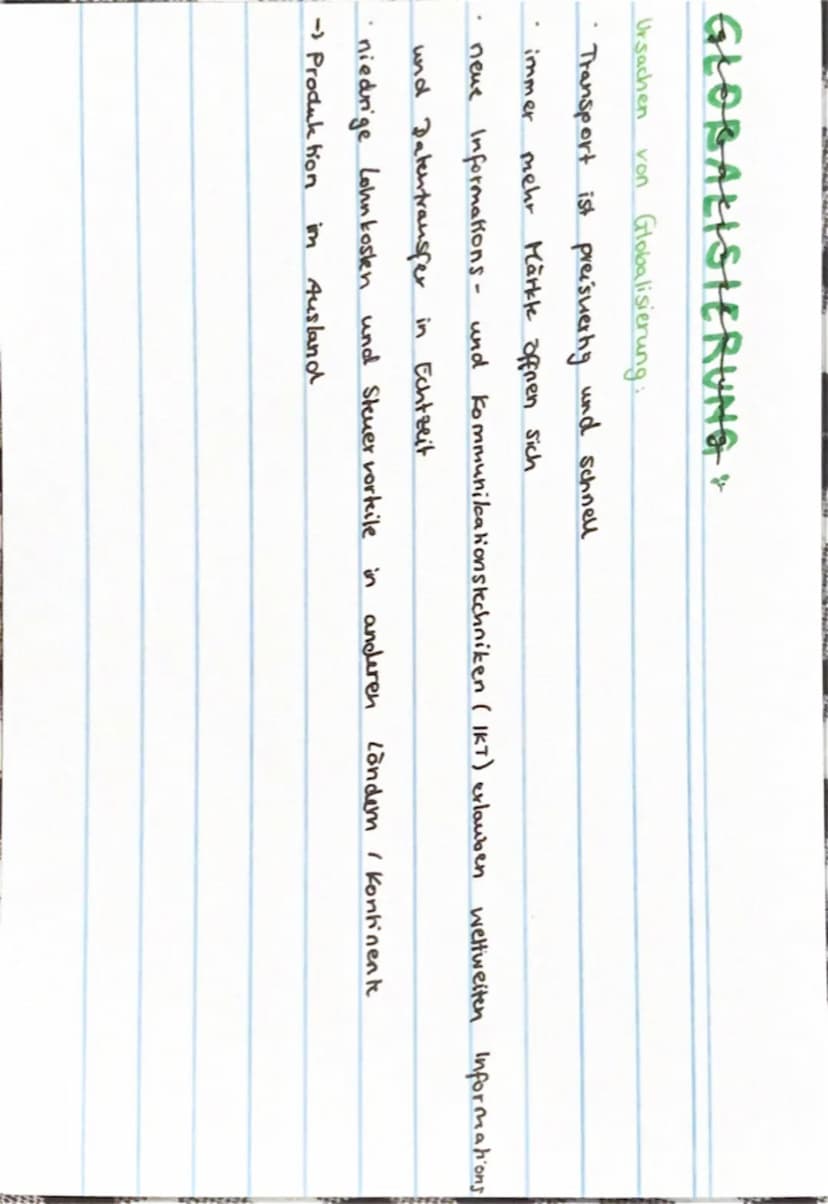 GLOBALISIERUNG:
Ursachen von Globalisierung:
· Transport ist preiswertig und schnell
· immer mehr Märkte öffnen sich
· neue Informations- und Kommunikationstechniken (IKT) erlauben weltweiten Informations
und Datentransfer in Echtzeit
· niedrige Lohnkosten und Steuervorteile in anderen Ländern / Kontinente
→ Produktion im Ausland